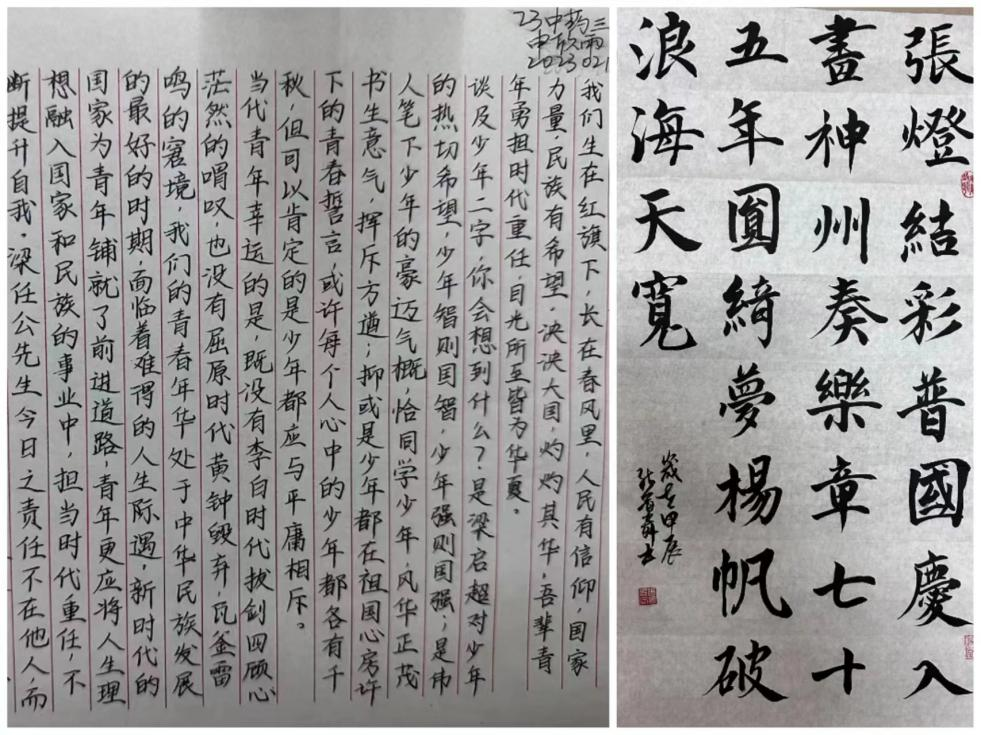 23中药三
2023021
我们生在红旗下，长在春风里，人民有信仰，国家
力量，民族有希望，决决大国，灼灼其华，吾辈青
年勇担时代重任，目光所至皆为华夏。
谈及少年二字，你会想到什么？是梁启超对少年
的热切希望，少年智则国智，少年强则国强；是伟
人笔下少年的豪迈气概，恰同学少年，风华正茂
书生意气，挥斥方遒；抑或是少年都在祖国心房许
下的青春誓言，或许每个人心中的少年都各有千
秋，但可以肯定的是少年都应与平庸相斥。
当代青年幸运的是，既没有李白时代拔剑四顾心
茫然的喟叹，也没有屈原时代黄钟毁弃，瓦釜雷
鸣的窘境，我们的青春年华处于中华民族发展
的最好的时期，面临着难得的人生际遇，新时代的
国家为青年铺就了前进道路，青年更应将人生理
想融入国家和民族的事业中，担当时代重任，不
断提升自我。梁任公先生今日之责任不在他人，而
張燈結彩普國慶入
畫神州奏樂章七十
五年圓綺夢楊帆破
浪海天寬
歲在甲辰